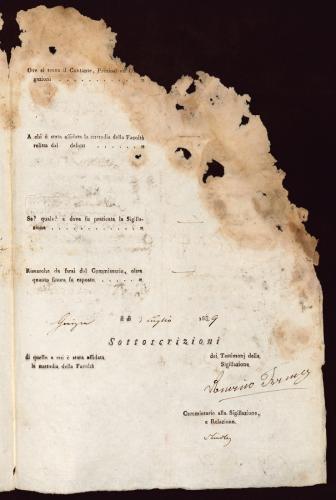 Ove si trova il Contante, Preziosi ed O
gazioni . . . . . . . . . . . . . . . . „
A chi è stata affidata la custodia della Facoltà
relitta dal defunto . . . . . . . . . „
Se? quale? e dove fu praticata la Sigilla-
zione . . . . . . . . . . . . . . . . „
Rimarche da farsi dal Commissario, oltre
quanto finora fu esposto. . . . . . . „
li Luglio 1839
Sottoscrizioni
di quello a cui è stata affidata
la custodia della Facoltà
dei Testimonj della
Sigillazione
Commissario alla Sigillazione,
e Relazione.